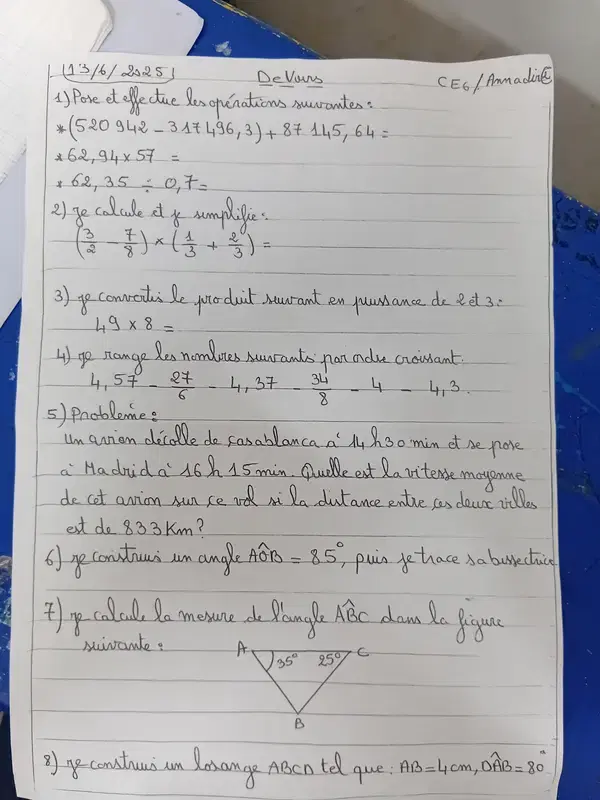 13/6/2025 Devoirs CE6/Annadir
1) Pose et effectue les opérations suivantes :
* (520 942 - 317 496,3) + 87 145,64 =
* 62,94 x 57 =
* 62,35 ÷ 0,7 =
2) Je calcule et je simplifie :
(3/2 - 7/8) × (1/3 + 2/3) =
3) Je convertis le produit suivant en puissance de 2 et 3 :
49 x 8 =
4) Je range les nombres suivants par ordre croissant.
4,57 - 27/6 - 4,37 - 34/8 - 4 - 4,3.
5) Problème :
Un avion décolle de Casablanca à 14 h 30 min et se pose
à Madrid à 16 h 15 min. Quelle est la vitesse moyenne
de cet avion sur ce vol si la distance entre ces deux villes
est de 833 Km ?
6) Je construis un angle AÔB = 85°, puis je trace sa bissectrice
7) Je calcule la mesure de l'angle AB̂C dans la figure
suivante :
A 35° 25° C
B
8) Je construis un losange ABCD tel que : AB = 4 cm, DÂB = 80°